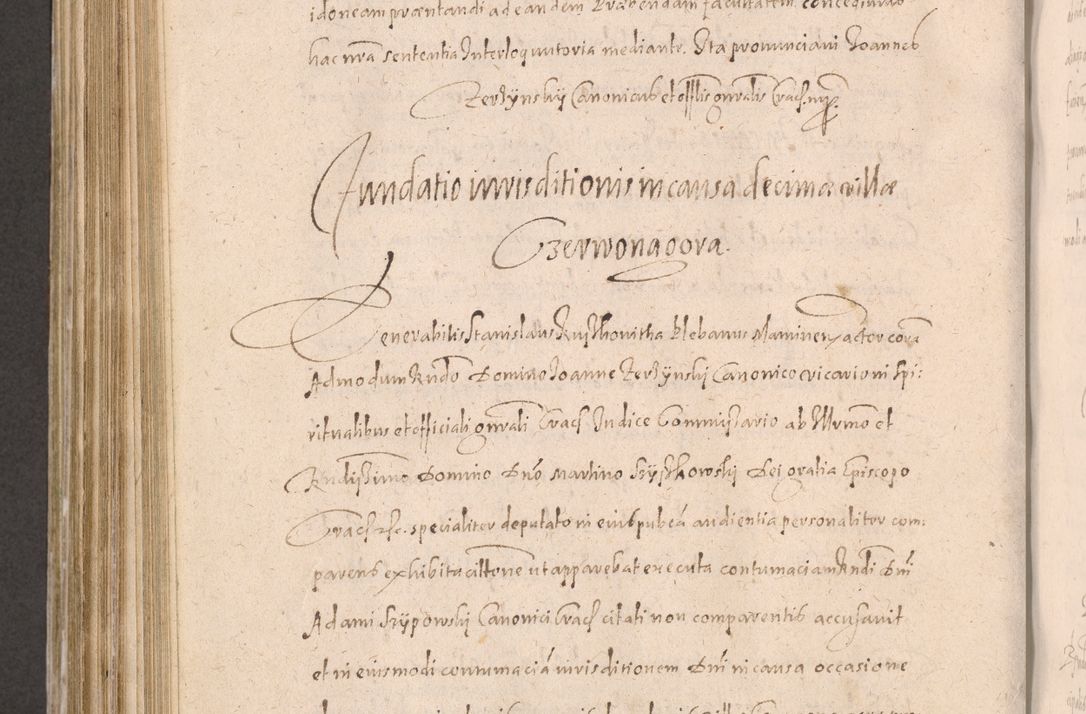 idoneam præsentandi ad eandem Præbendam facultatem concedimus
hac nrā sententia Interloquutoria mediante. Ita pronunciavi Joannes
Zerzynskij Canonicus et offlis gnralis Crac. mpp.
Fundatio iurisditionis in causa decimæ villæ
Czerwonagora.
Venerabilis Stanislaus Plebanus Maminen. actor corā
Admodum Rndo Domino Joanne Zerzynskij Canonico vicario in Spi:
ritualibus et officiali gnrali Crac. Judice Commissario ab Illrmo et
Rndissimo Domino Dno Martino Szyszkowskij Dei gratia Episcopo
Crac. etc. specialiter deputato in eius publcā audientia personaliter com:
parens exhibita cittone ut apparebat executa contumaciam Rndi Dni
Adami Szypowskij Canonici Crac. citati non comparentis accusavit
et in eiusmodi contumaciā iurisditionem Dni in causa occasione